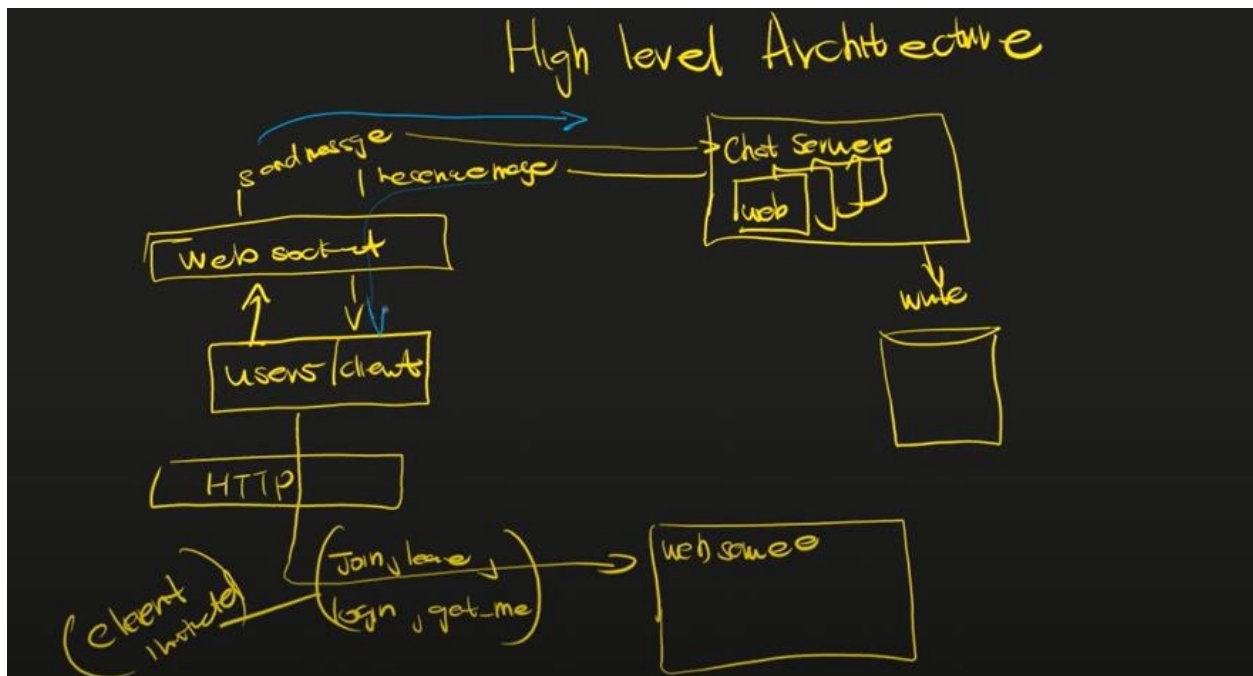 High level Architecture
send message
receive message
Chat Servers
web
Web socket
write
users/client
HTTP
Join, leave,
login, get_me
web
(client